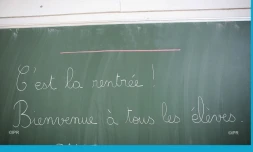 C'est la rentrée !
Bienvenue à tous les élèves.
©IP3 ©IP3